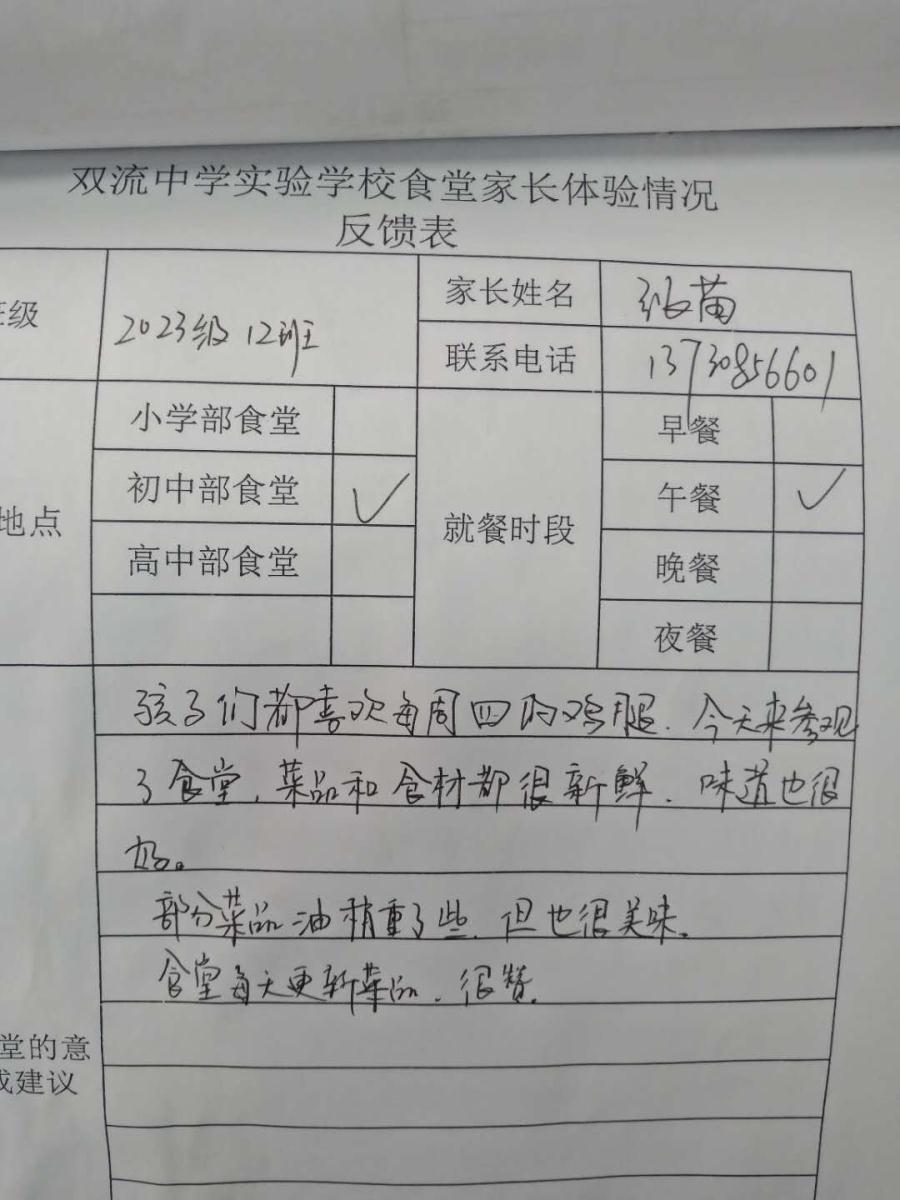 双流中学实验学校食堂家长体验情况
反馈表
班级
2023级 12班
家长姓名
张苗
联系电话
13730856601
地点
小学部食堂
初中部食堂 ✓
高中部食堂
就餐时段
早餐
午餐 ✓
晚餐
夜餐
孩子们都喜欢每周四的鸡腿.今天来参观
了食堂,菜品和食材都很新鲜.味道也很
好。
部分菜品油稍重了些.但也很美味。
食堂每天更新菜品.很赞.
堂的意
或建议